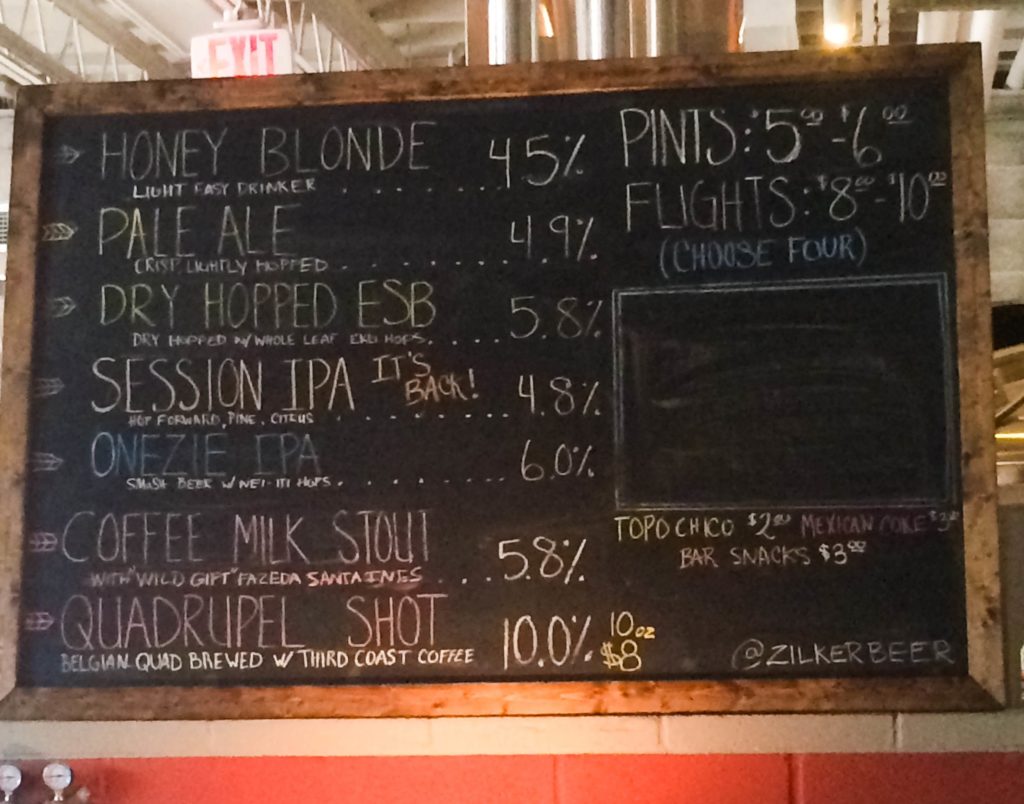 EXIT
HONEY BLONDE 4.5%
LIGHT EASY DRINKER
PALE ALE 4.9%
CRISP, LIGHTLY HOPPED
DRY HOPPED ESB 5.8%
DRY HOPPED W/ WHOLE LEAF HOPS
SESSION IPA IT'S BACK! 4.8%
HOP FORWARD, PINE, CITRUS
ONEZIE IPA 6.0%
SMaSH BEER W/ HOPS
COFFEE MILK STOUT 5.8%
WITH "WILD GIFT" FAZEDA SANTA INES
QUADRUPEL SHOT 10.0% 10 OZ $8
BELGIAN QUAD BREWED W/ THIRD COAST COFFEE
PINTS: $5.00 - $6.00
FLIGHTS: $8.00 - $10.00
(CHOOSE FOUR)
TOPO CHICO $2.00 MEXICAN COKE
BAR SNACKS $3.00
@ZILKERBEER